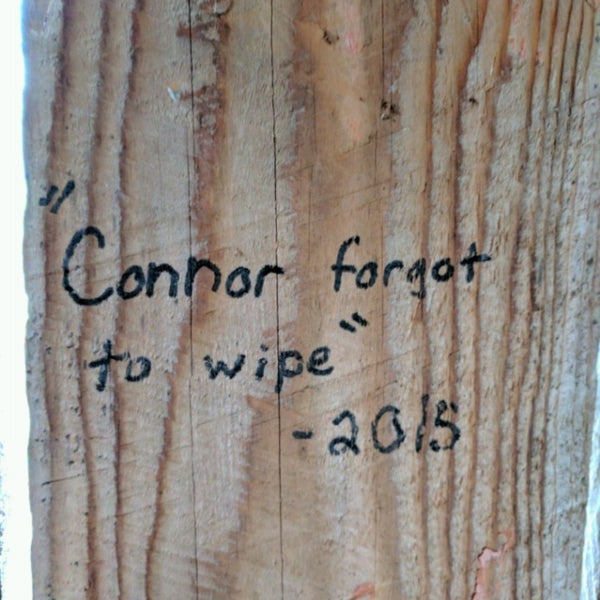 "Connor forgot
to wipe"
-2015